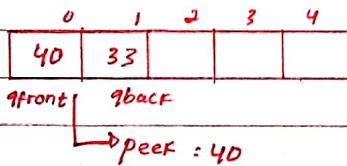 0 1 2 3 4
40 33
qfront qback
peek : 40